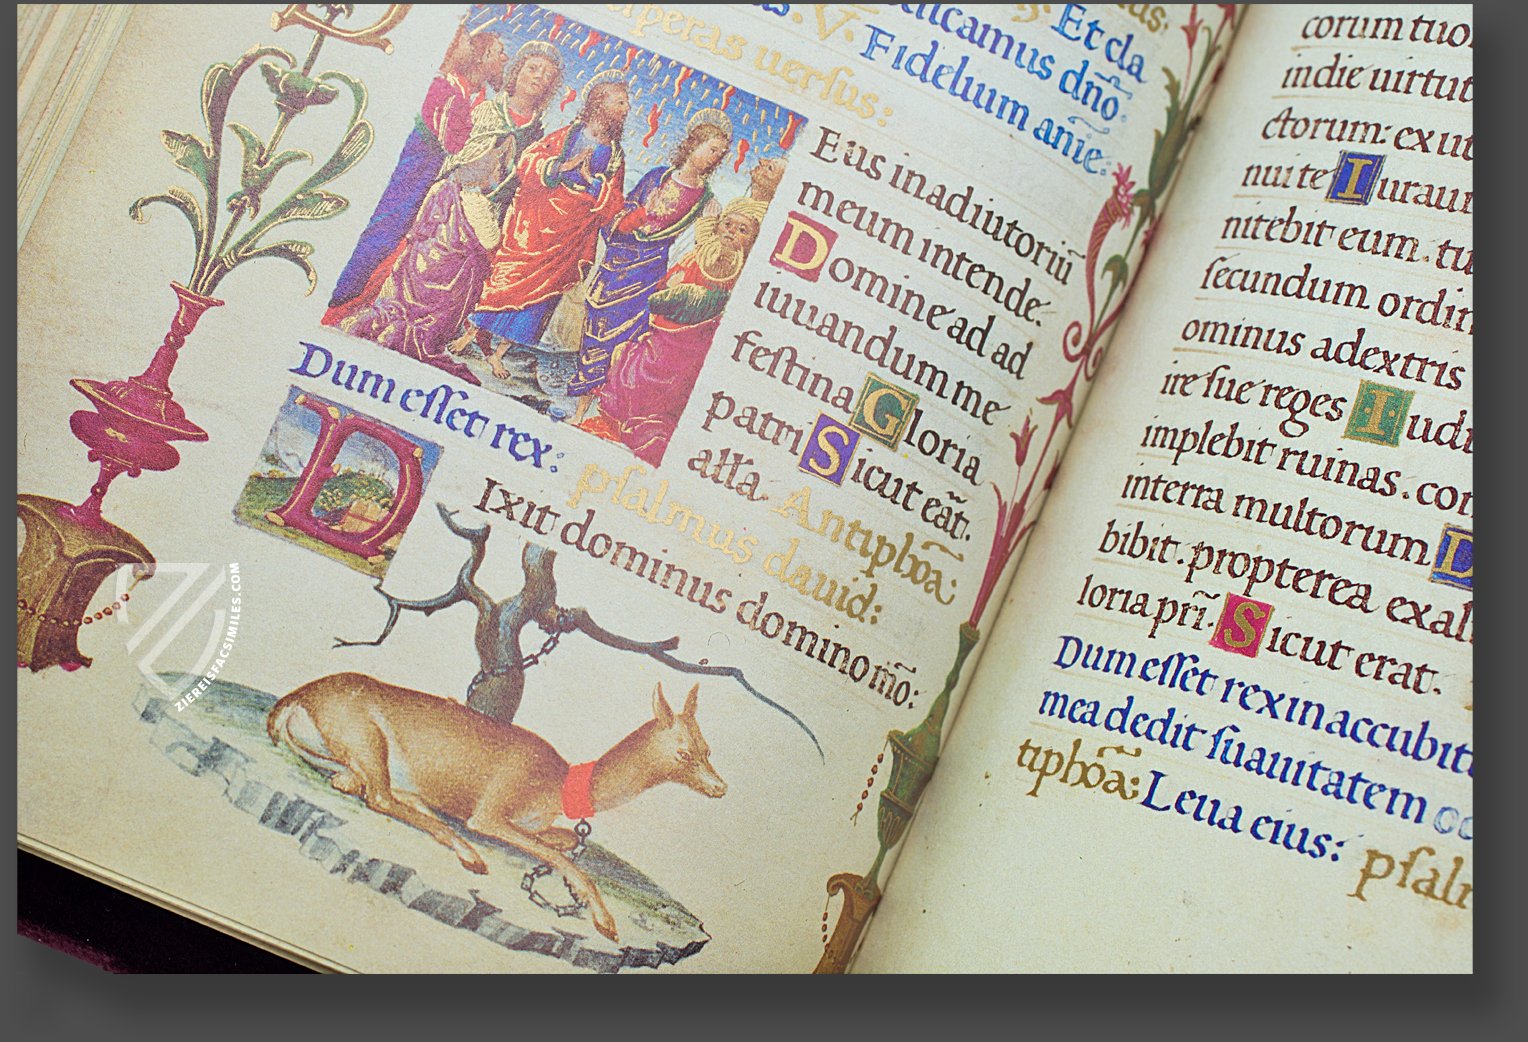 Et da
dicamus dño
Fidelium anie:
uersus:
Eus in adiutoriũ
meum intende.
Domine ad ad
iuuandum me
festina Gloria
patri Sicut eãt.
alła. Antiphõa:
Dum esset rex: psalmus dauid:
DIxit dominus domino mõ:
ZIEREISFACSIMILES.COM
corum tuo
in die uirtut
ctorum: ex ut
nui te Iuraui
nitebit eum. tu
secundum ordin
ominus a dextris
ire sue reges Iudi
implebit ruinas. con
in terra multorum D
bibit. propterea exal
loria pri. Sicut erat.
Dum esset rex in accubit
mea dedit suauitatem
tiphõa: Leua eius: psal